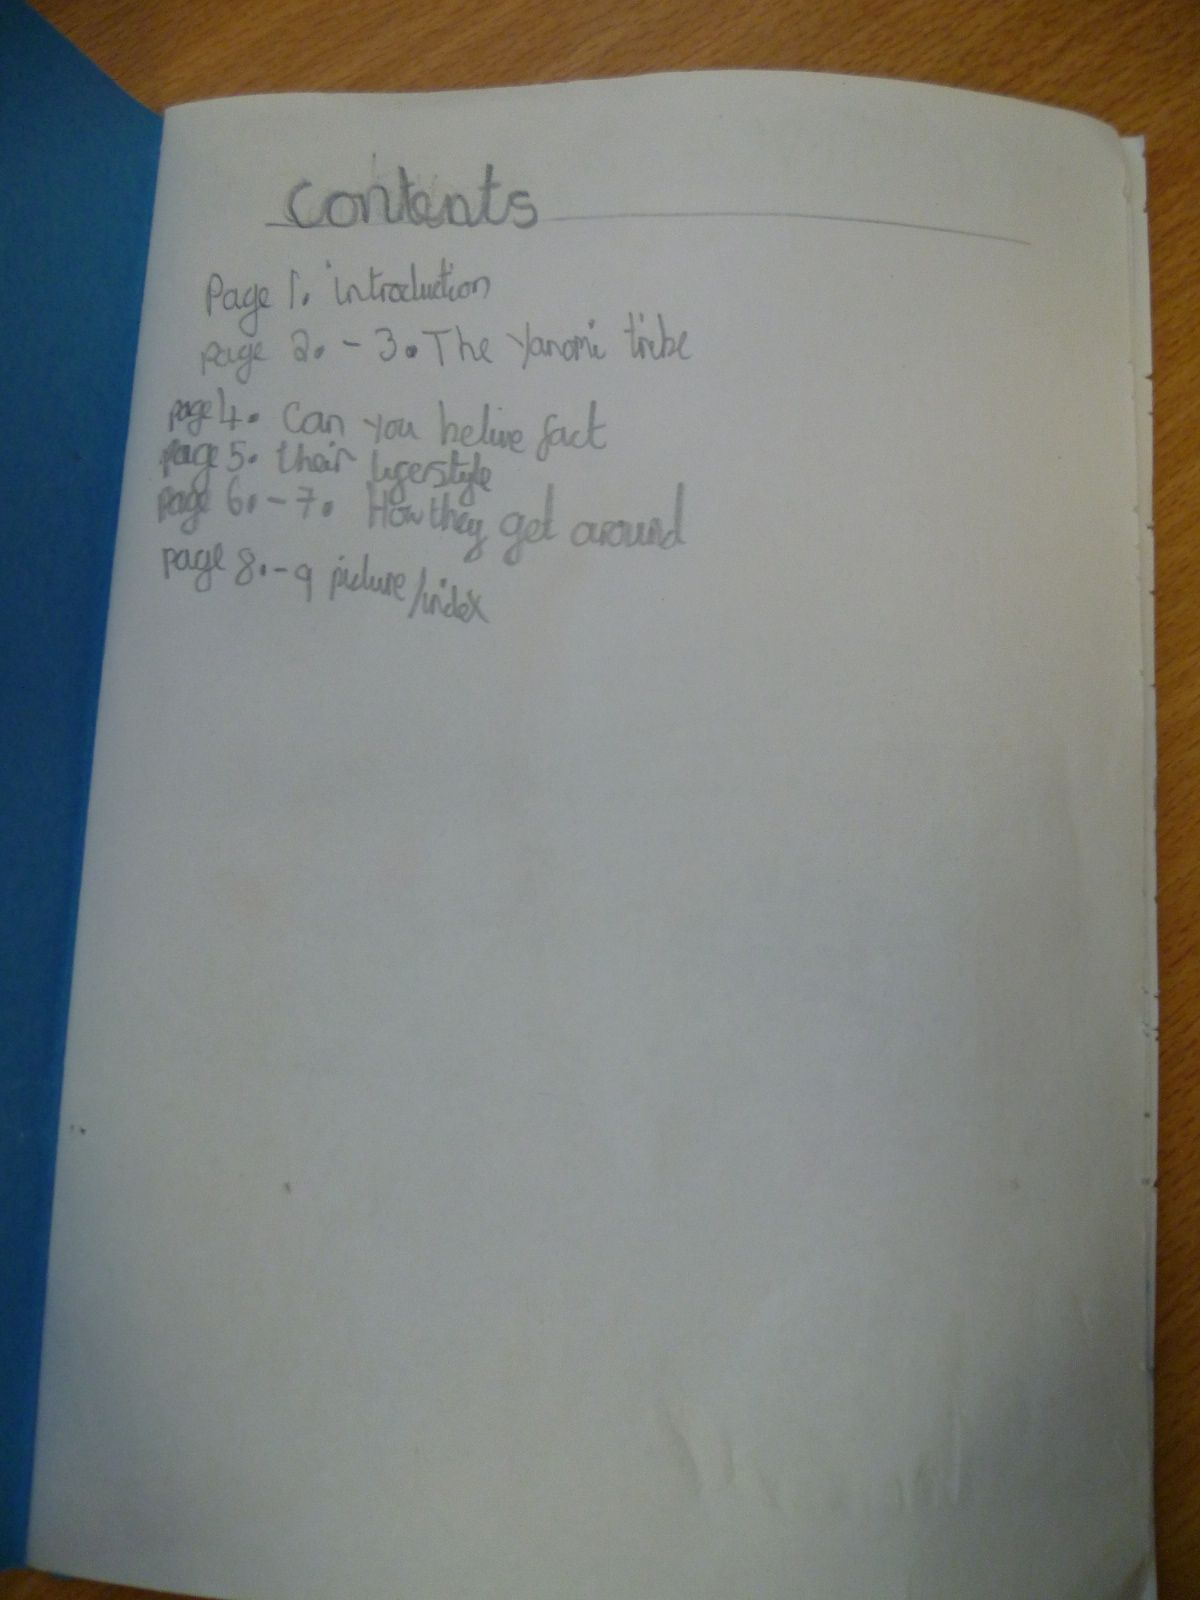 Contents
Page 1. introduction
page 2. - 3. The Yanomi tribe
page 4. Can you belive fact
page 5. their lyferstyle
page 6. - 7. How they get around
page 8. - 9 picture/index